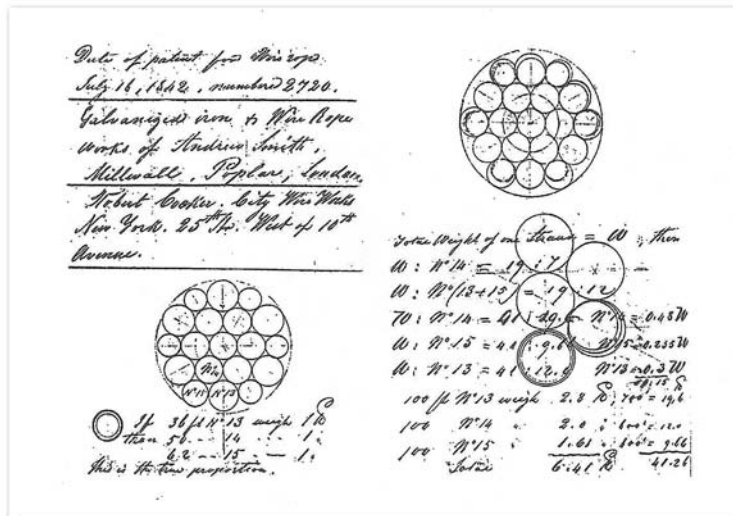 Date of patent for Wire rope
July 16, 1842, numbered 2720.
Galvanized iron & Wire Rope
works of Andrew Smith,
Millwall, Poplar, London.
Robert Cooker. City Wire Works
New York. 25th St. West of 10th
Avenue.
No 14
No 15 No 13
If 36 ft No 13 weigh 1 lb
then 50 " 14 " " 1 "
62 " 15 " — 1 "
This is the true proportion.
Total Weight of one Strand = W, then
W : No 14 = 19 : 7
W : No (13+15) = 19 : 12
W : No 14 = 41 : No 14 = 0.48 W
W : No 15 = 41 : 9.6 No 15 = 0.235 W
W : No 13 = 41 : 12. No 13 = 0.3 W
100 ft No 13 weigh 2.8 lb, 700 = 19.6
100 No 14 " 2.0 " 600 = 12.0
100 No 15 " 1.61 " 600 = 9.66
Total 6.41 lb 41.26